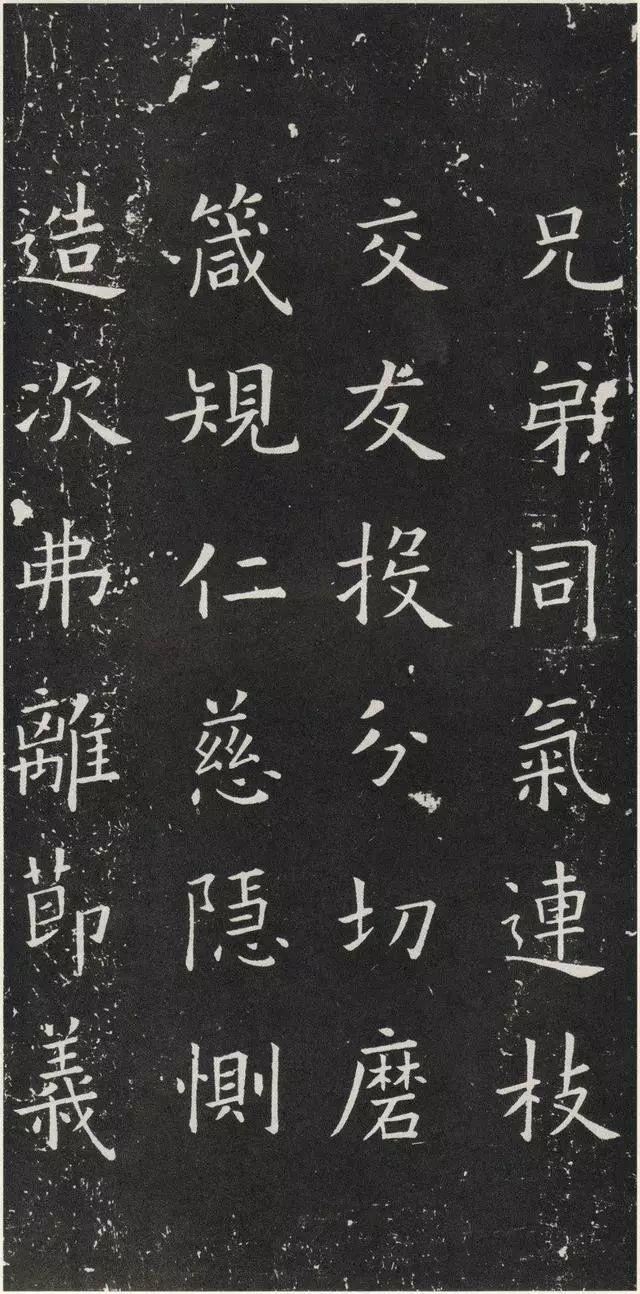 兄弟同氣連枝
交友投分切磨
箴規仁慈隠惻
造次弗離節義